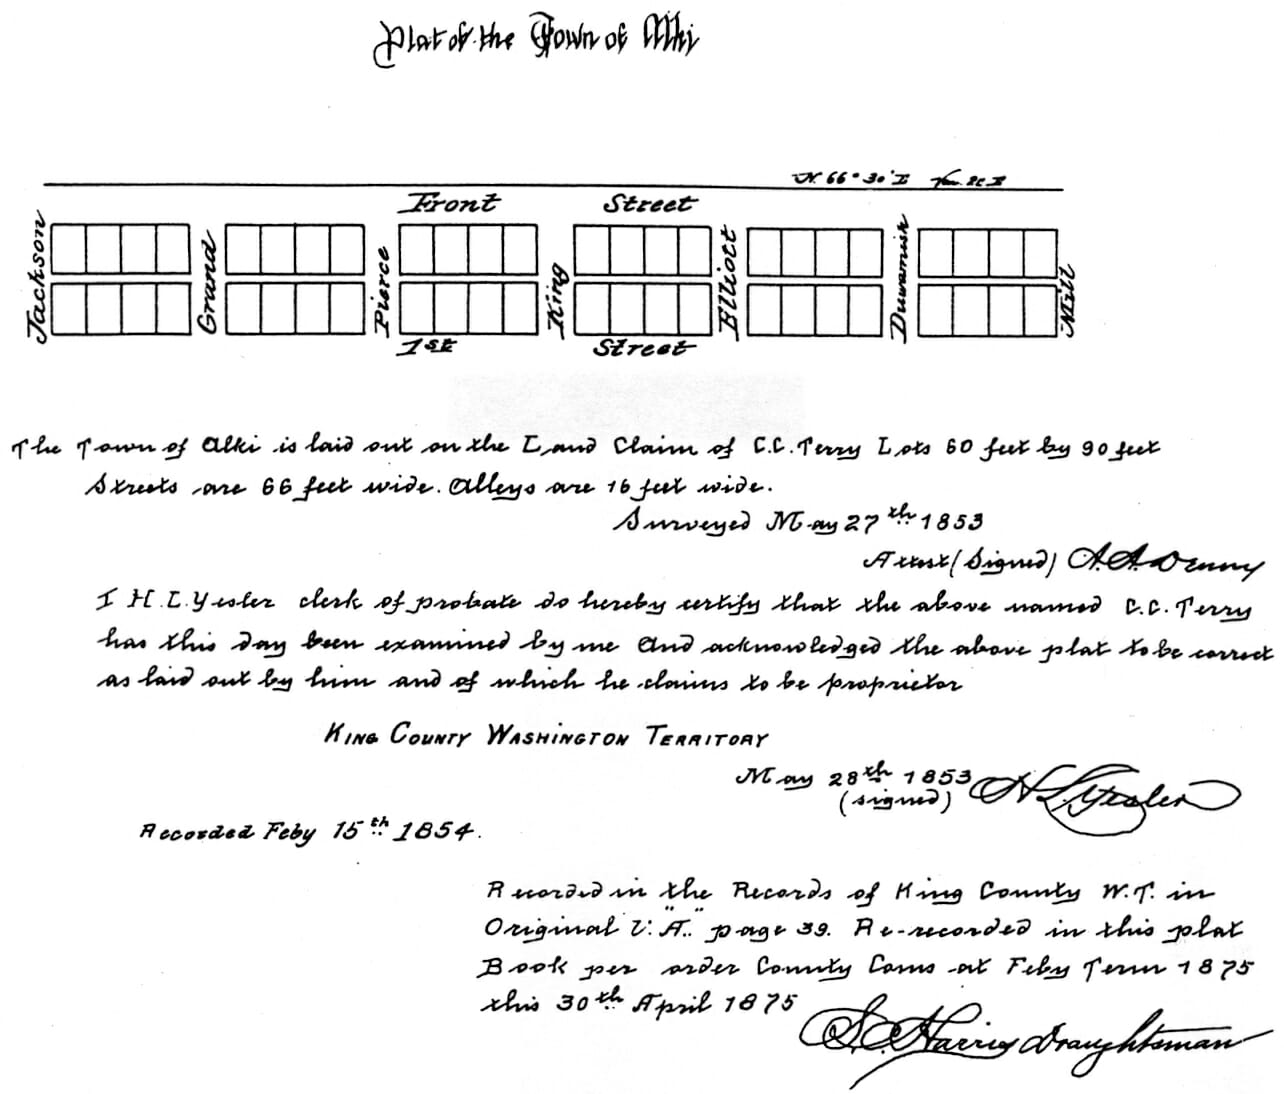 Plat of the Town of Alki
N. 66° 30' E Var. 21 E
Front Street
Jackson
Grand
Pierce
King
Elliott
Duwamish
Mill
1st Street
The Town of Alki is laid out on the Land Claim of C.C. Terry Lots 60 feet by 90 feet
Streets are 66 feet wide. Alleys are 16 feet wide.
Surveyed May 27th 1853
Attest (Signed) A.A. Denny
I H.L. Yesler clerk of probate do hereby certify that the above named C.C. Terry
has this day been examined by me and acknowledged the above plat to be correct
as laid out by him and of which he claims to be proprietor
KING COUNTY WASHINGTON TERRITORY
May 28th 1853 H L Yesler
(signed)
Recorded Feby 15th 1854.
Recorded in the Records of King County W.T. in
Original V. "A.." page 39. Re-recorded in this plat
Book per order County Coms at Feby Term 1875
this 30th April 1875
S.C. Harris Draughtsman